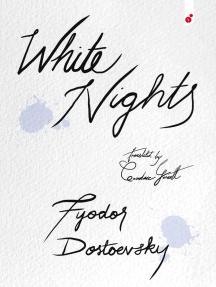 White
Nights
translated by
Constance Garnett
Fyodor
Dostoevsky